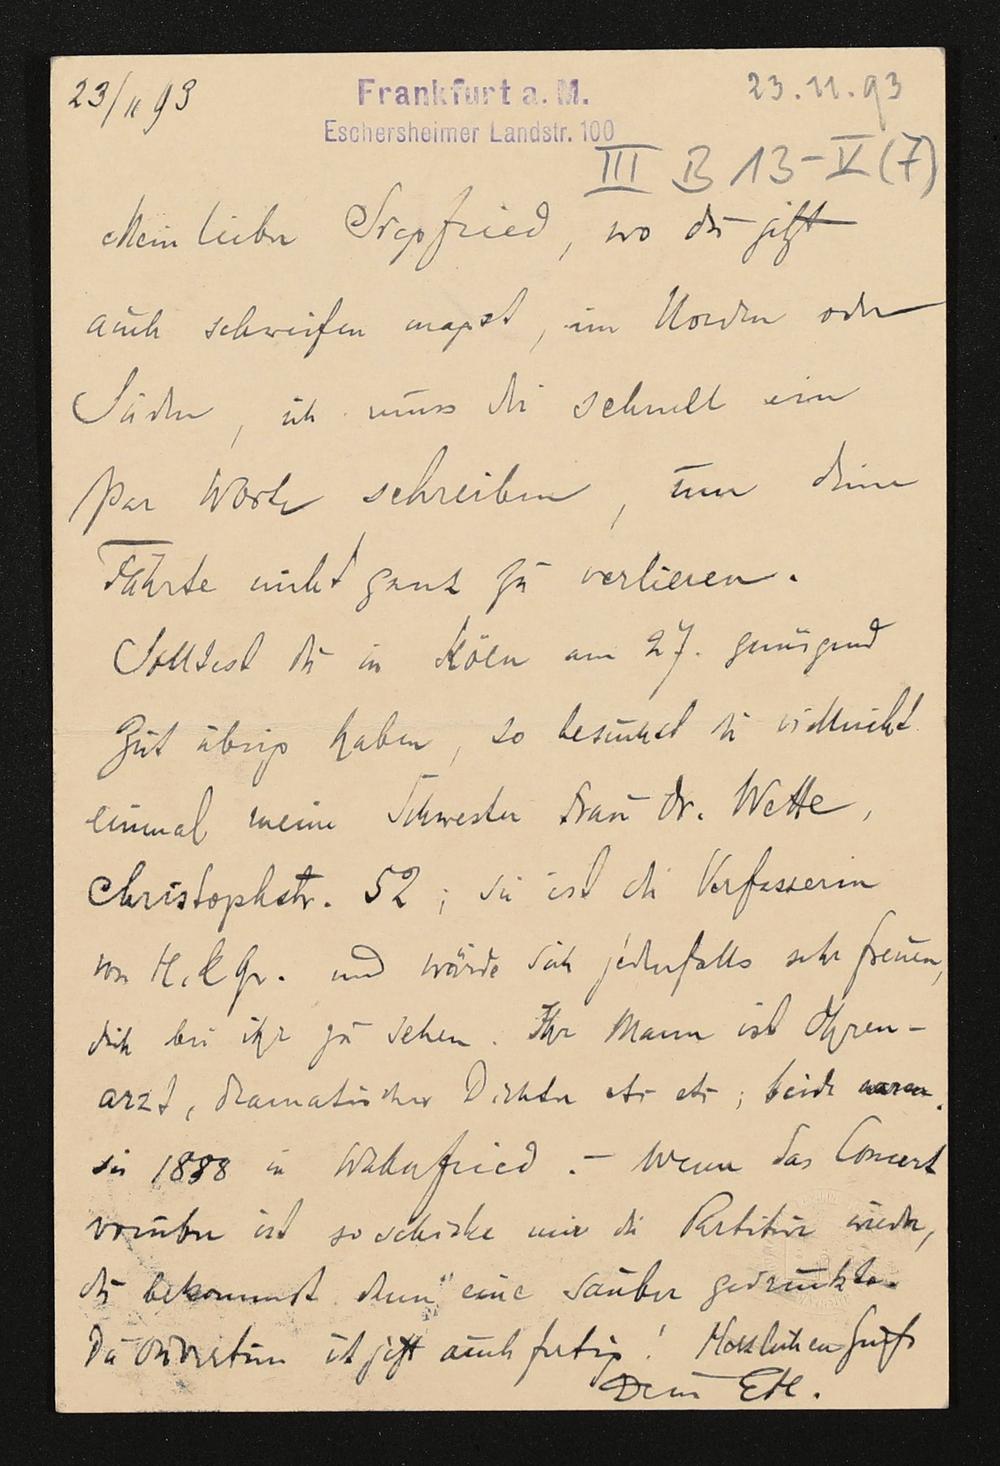 23/11 93
Frankfurt a. M.
23.11.93
Eschersheimer Landstr. 100
III B 13-V(7)
Mein lieber Siegfried, wo du jetzt
auch schweifen magst, im Norden oder
Süden, ich muss dir schnell ein
par Worte schreiben, um deine
Fährte nicht ganz zu verlieren.
Solltest du in Köln am 27. genügend
Zeit übrig haben, so besuchst du vielleicht
einmal meine Schwester Frau Dr. Wette,
Christophstr. 52; sie ist die Verfasserin
von H. & Gr. und würde sich jedenfalls sehr freuen,
dich bei ihr zu sehen. Ihr Mann ist Ohren-
arzt, dramatischer Dichter etc etc; beide waren
sie 1888 in Wahnfried. – Wenn das Concert
vorüber ist so schicke mir die Partitur wieder,
du bekommst dann eine sauber gedruckte.
Die Ouvertüre ist jetzt auch fertig! Herzlichen Gruß
Dein EH.